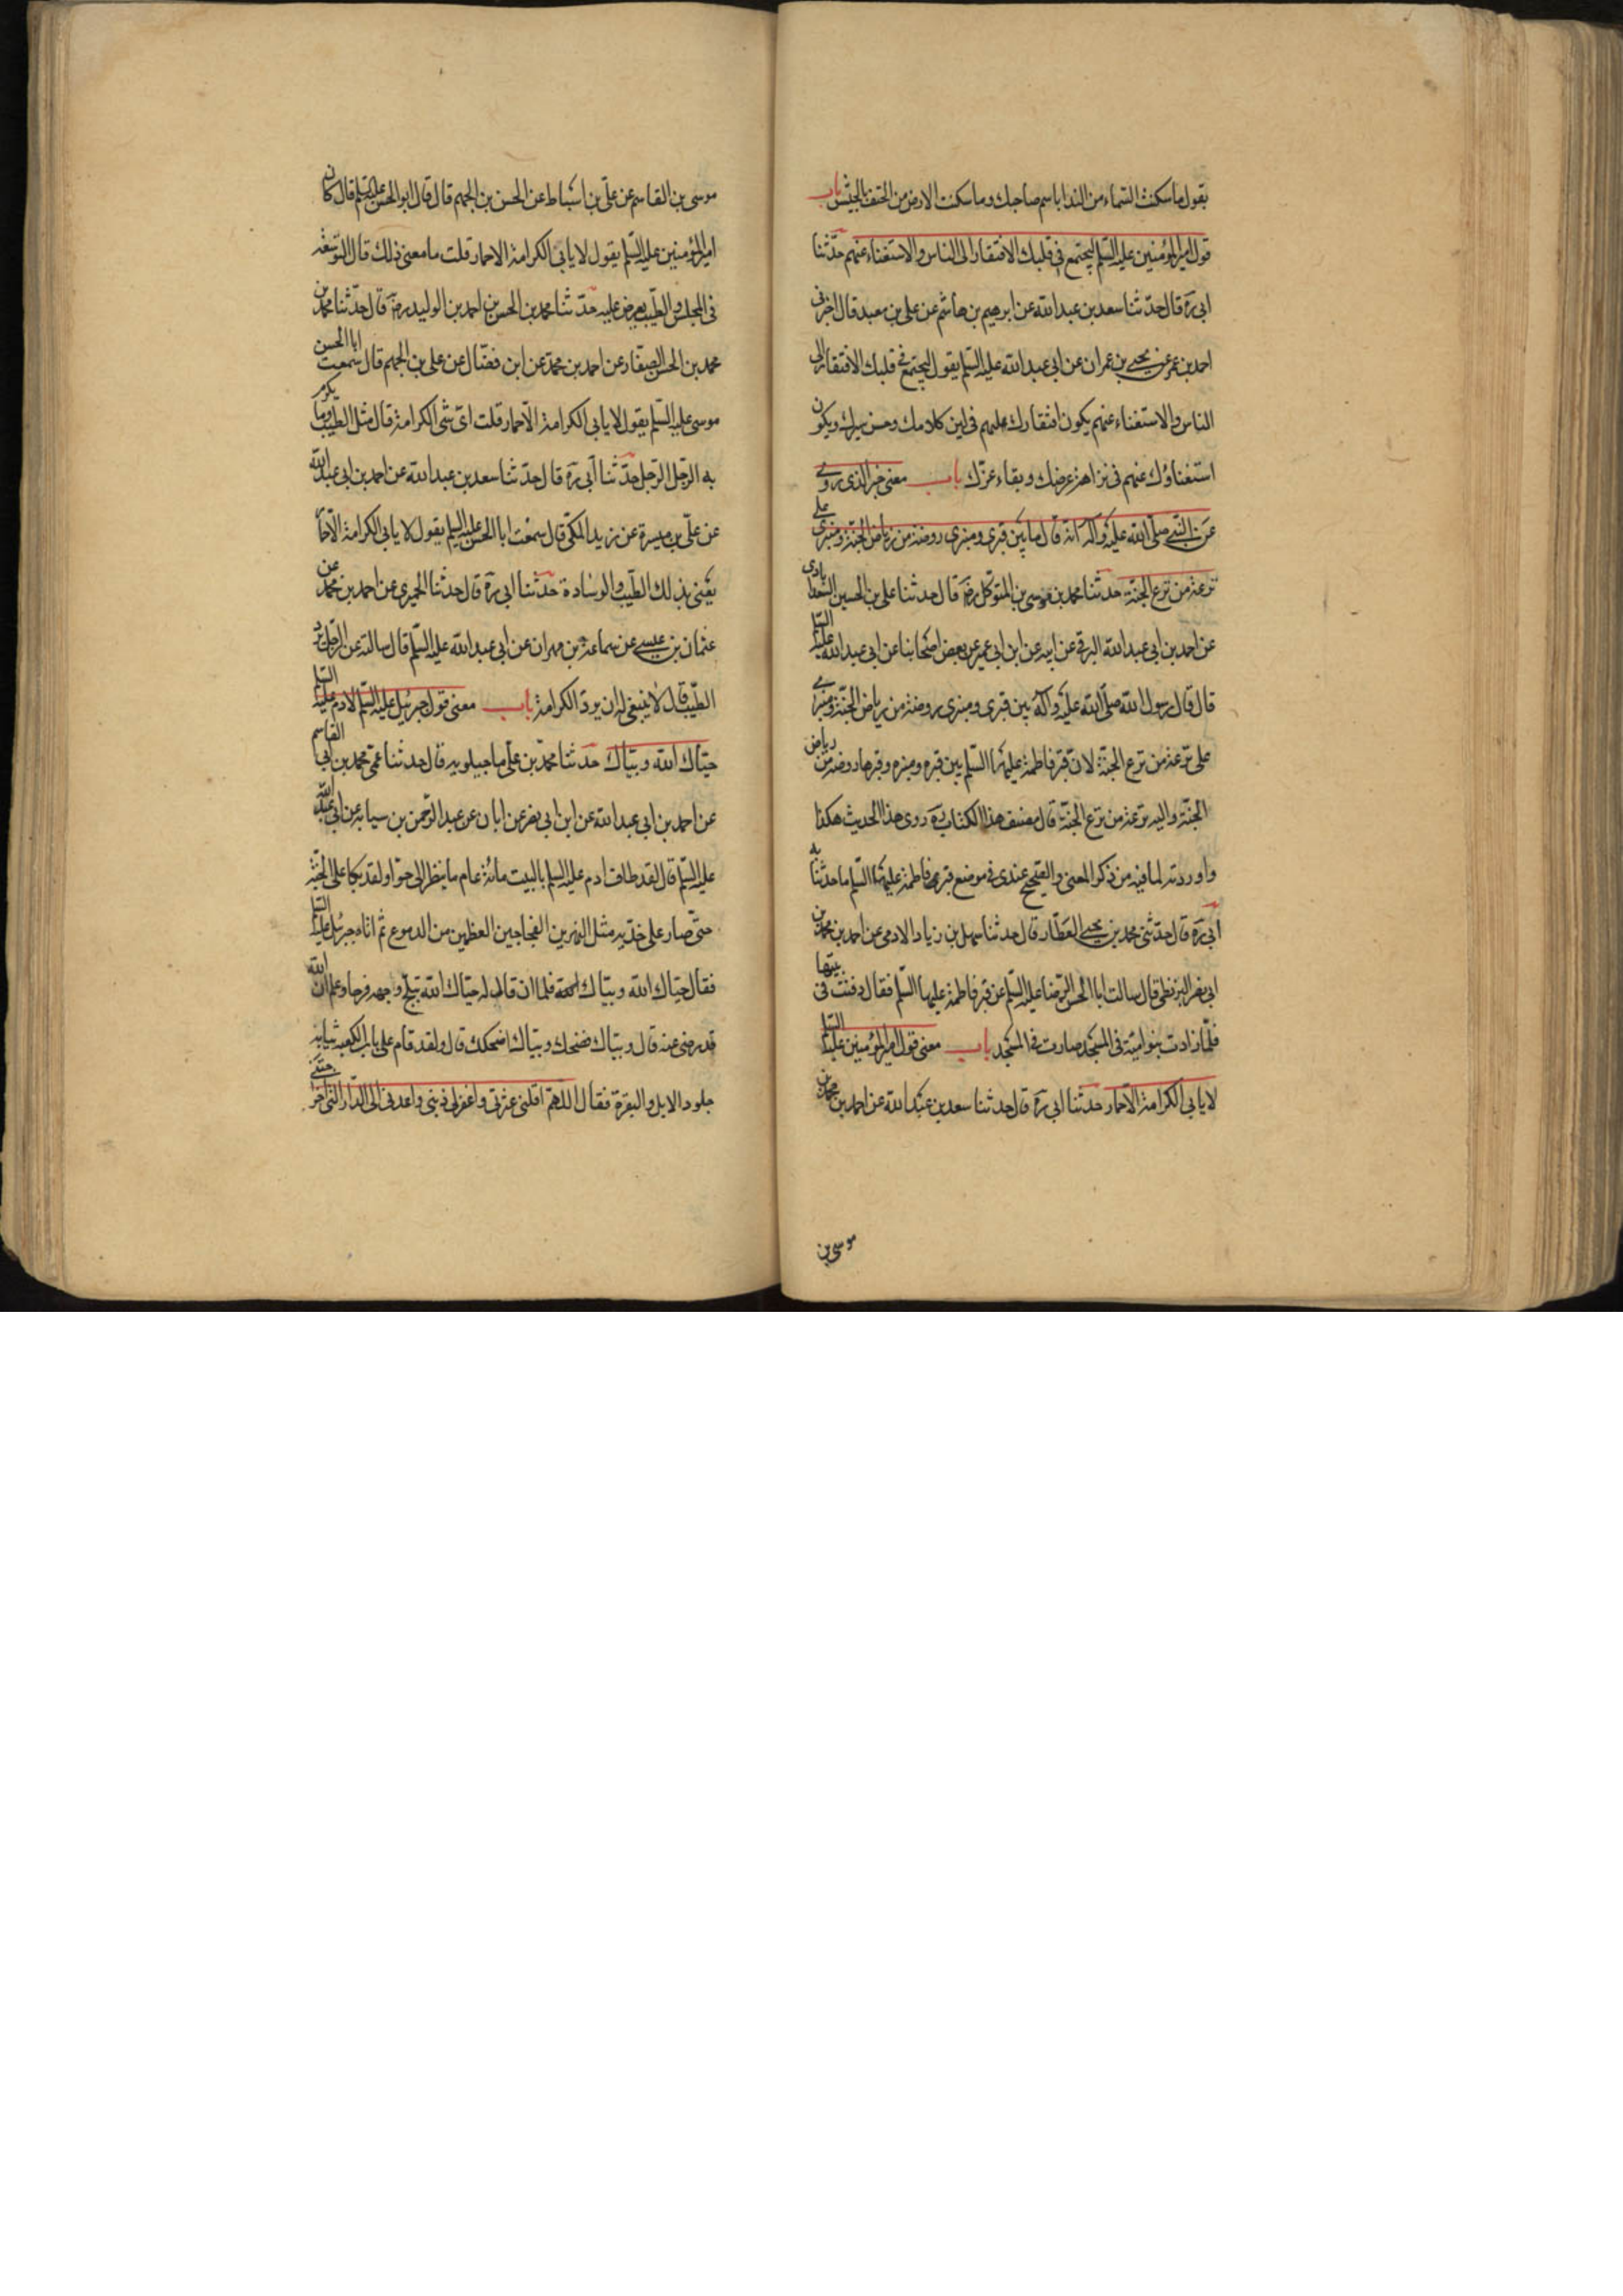 يقول ما سكنت السماء من النداء باسم صاحبك وما سكنت الارض من الخسف بالجيش باب
قول امير المؤمنين عليه السلم ليجتمع في قلبك الافتقار الى الناس والاستغناء عنهم حدّثنا
ابي ره قال حدّثنا سعد بن عبد الله عن ابرهيم بن هاشم عن علي بن معبد قال اخبرني
احمد بن عمر عن يحيى بن عمران عن ابي عبد الله عليه السلم يقول ليجتمع في قلبك الافتقار الى
الناس والاستغناء عنهم يكون افتقارك اليهم في لين كلامك وحسن سيرك ويكون
استغناؤك عنهم في نزاهة عرضك وبقاء عزّك باب معنى خبر الذي روي
عن النبي صلى الله عليه وآله انه قال ما بين قبري ومنبري روضة من رياض الجنة ومنبري على
ترعة من ترع الجنة حدّثنا محمد بن موسى بن المتوكل رضه قال حدثنا علي بن الحسين السعدابادي
عن احمد بن ابي عبد الله البرقي عن ابيه عن ابن ابي عمير عن بعض اصحابنا عن ابي عبد الله عليه السلم
قال قال رسول الله صلى الله عليه وآله بين قبري ومنبري روضة من رياض الجنة ومنبري
على ترعة من ترع الجنة لان قبر فاطمة عليها السلم بين قبره ومنبره وقبرها روضة من رياض
الجنة واليه ترعة من ترع الجنة قال مصنف هذا الكتاب ره روى هذا الحديث هكذا
واوردته لما فيه من ذكر المعنى والصحيح عندي في موضع قبر فاطمة عليها السلم ما حدثنا به
ابي ره قال حدثني محمد بن يحيى العطار قال حدثنا سهل بن زياد الادمي عن احمد بن محمد بن
ابي نصر البزنطي قال سالت ابا الحسن الرضا عليه السلم عن قبر فاطمة عليها السلم فقال دفنت في بيتها
فلما زادت بنو امية في المسجد صارت في المسجد باب معنى قول امير المؤمنين عليه السلم
لا يابى الكرامة الا حمار حدثنا ابي ره قال حدثنا سعد بن عبد الله عن احمد بن محمد بن
موسى بن
موسى بن القاسم عن علي بن اسباط عن الحسن بن الجهم قال قال ابو الحسن عليه السلم قال كان
امير المؤمنين عليه السلم يقول لا يابى الكرامة الا حمار قلت ما معنى ذلك قال التوسعة
في المجلس والطيب يعرض عليه حدّثنا محمد بن الحسن بن احمد بن الوليد رضه قال حدّثنا محمد بن
محمد بن الحسن الصفار عن احمد بن محمد عن ابن فضال عن علي بن الجهم قال سمعت ابا الحسن
موسى عليه السلم يقول لا يابى الكرامة الا حمار قلت اي شي الكرامة قال مثل الطيب وما يكرم
به الرجل الرجل حدّثنا ابي ره قال حدثنا سعد بن عبد الله عن احمد بن ابي عبد الله
عن علي بن ميسرة عن زيد المكي قال سمعت ابا الحسن عليه السلم يقول لا يابى الكرامة الا حمار
يعني بذلك الطيب والوسادة حدّثنا ابي ره قال حدثنا الحميري عن احمد بن محمد عن
عثمان بن عيسى عن سماعة بن مهران عن ابي عبد الله عليه السلم قال سالته عن الرجل يرد
الطيب قال لا ينبغي له ان يرد الكرامة باب معنى قول جبرئيل عليه السلم لادم عليه السلم
حياك الله وبياك حدثنا محمد بن علي ماجيلويه قال حدثنا عمي محمد بن ابي القاسم
عن احمد بن ابي عبد الله عن ابن ابي نصر عن ابان عن عبد الرحمن بن سيابة عن ابي عبد الله
عليه السلم قال لقد طاف ادم عليه السلم بالبيت مائة عام ما ينظر الى حوا ولقد بكا على الجنة
حتى صار على خديه مثل النهرين العجاجين العظيمين من الدموع ثم اتاه جبرئيل عليه السلم
فقال حياك الله وبياك فلما ان قال له حياك الله تبلج وجهه فرحا وعلم ان الله
قد رضي عنه قال وبياك فضحك وبياك اضحكك قال ولقد قام على باب الكعبة ثيابه
جلود الابل والبقرة فقال اللهم اقلني عثرتي واغفر لي ذنبي واعدني الى الدار التي اخرجتني